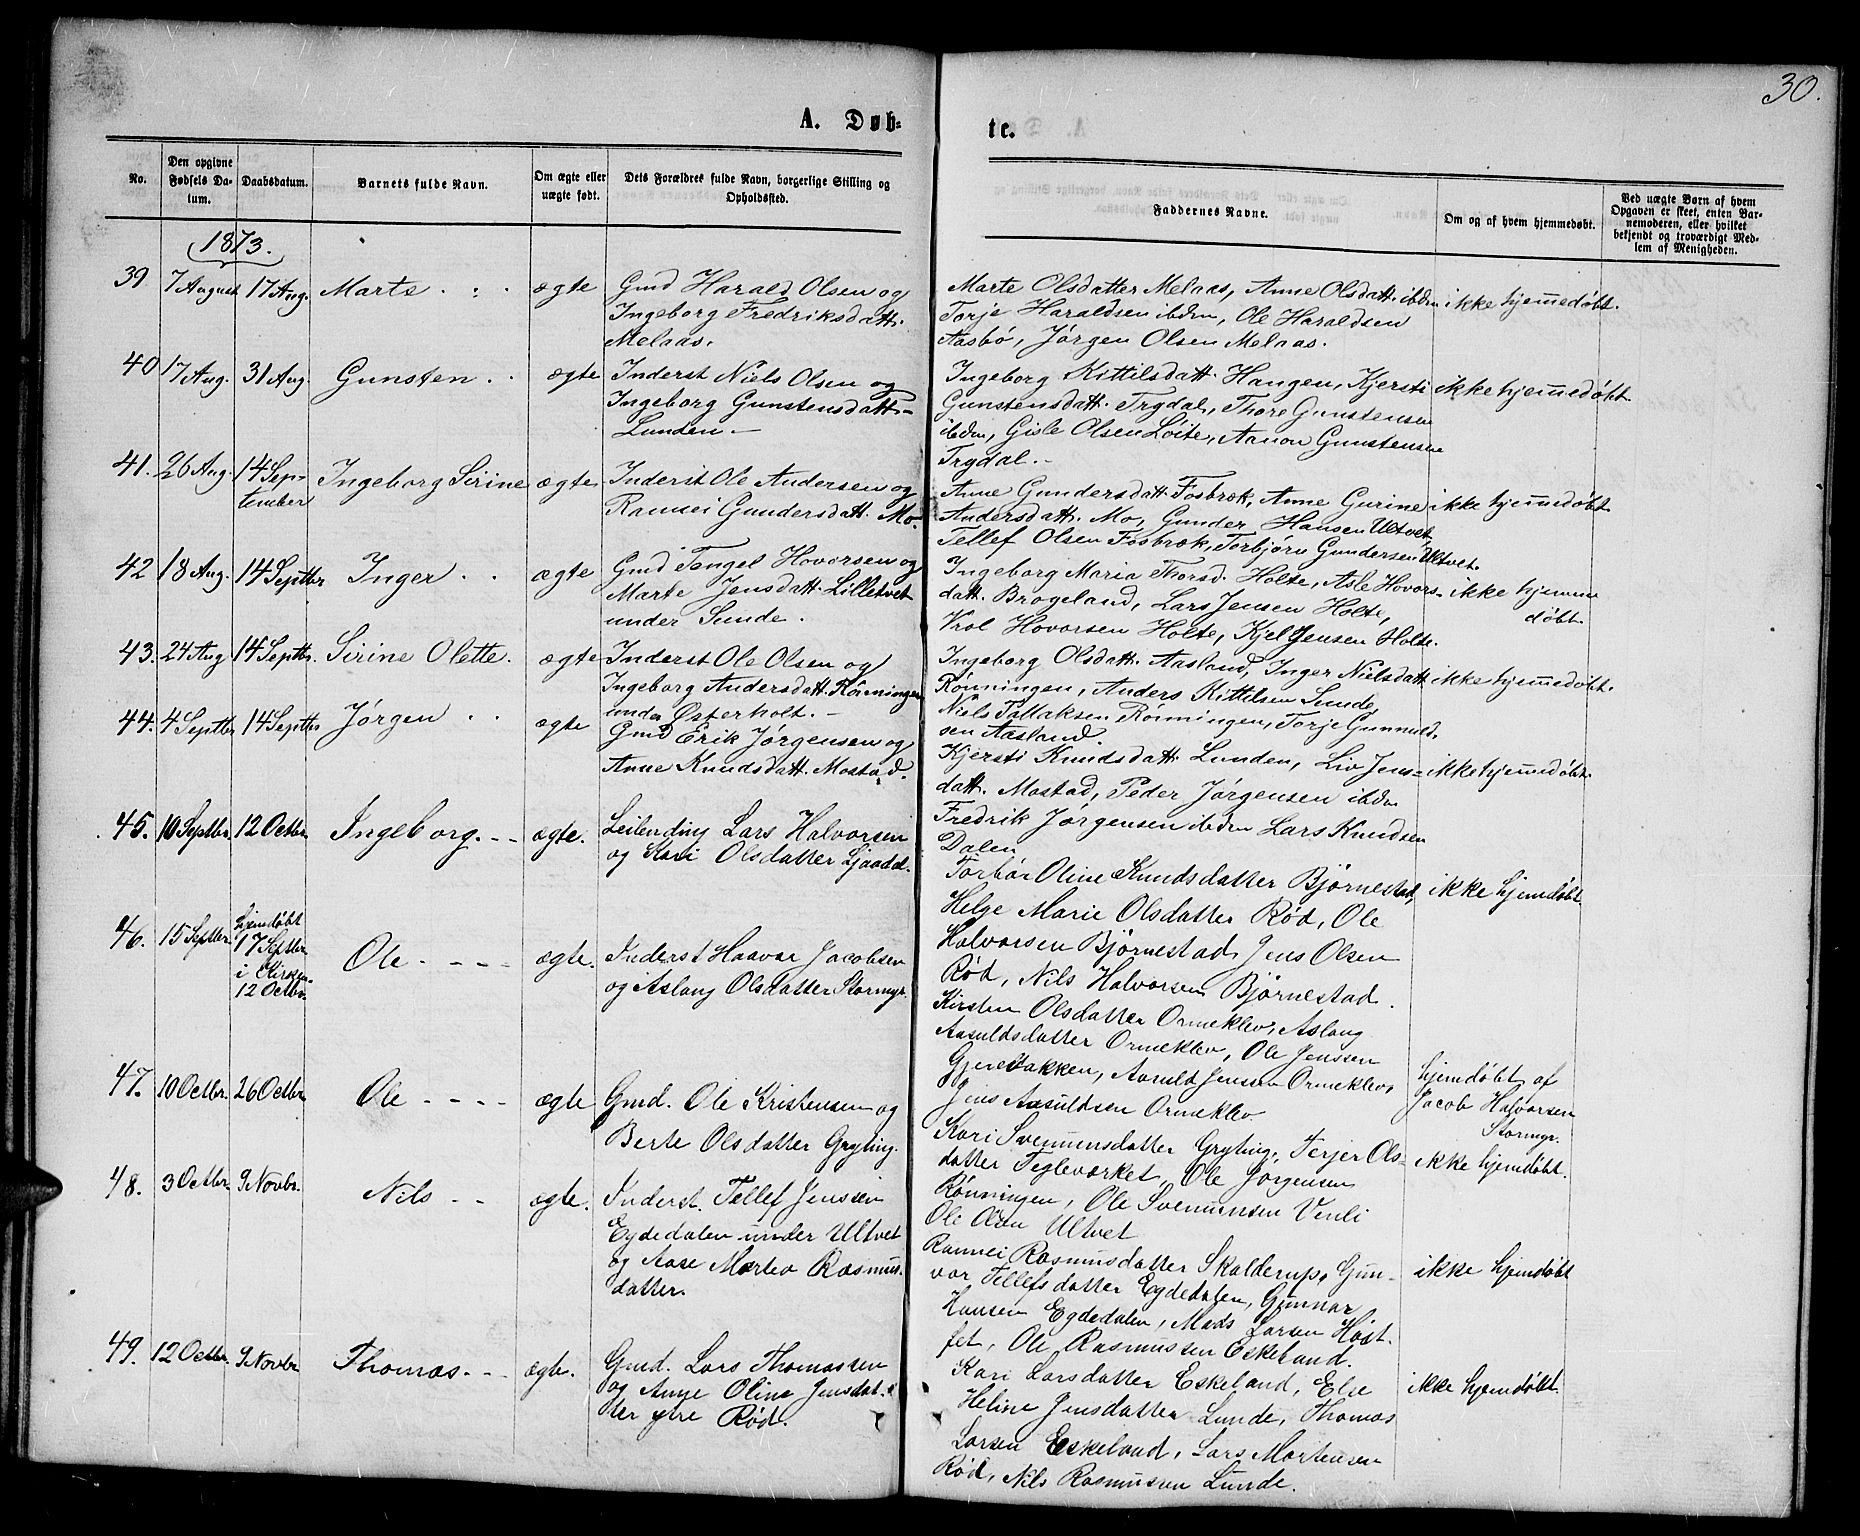 30.
A. Døb-
te.
No.
Den opgivne Fødsels Da-tum.
Daabsdatum.
Barnets fulde Navn.
Om ægte eller uægte født.
Dets Forældres fulde Navn, borgerlige Stilling og Opholdssted.
Faddernes Navne.
Om og af hvem hjemmedøbt.
Ved uægte Børn af hvem Opgaven er skeet, enten Bar-nemoderen, eller hvilket bekjendt og troværdigt Med-lem af Menigheden.
1873.
39 7 August 17 Aug. Marte ægte Gmd Harald Olsen og
Ingeborg Fredriksdatt.
Melaas.
Marte Olsdatter Melaas, Anne Olsdatt. ibdm ikke hjemedøbt.
Torje Haraldsen ibdm, Ole Haraldsen
Aasbø, Jørgen Olsen Melaas.
40 17 Aug. 31 Aug. Gunsten ægte Inderst Niels Olsen og
Ingeborg Gunstensdatt.
Lunden.
Ingeborg Kittilsdatt. Haugen, Kjersti ikke hjemedøbt
Gunstensdatt. Trydal, Thore Gunstensen
ibdm, Gisle Olsen Løite, Aanon Gunstensen
Trydal.
41. 26 Aug. 14 Sep-
tember Ingeborg Sirine ægte Inderst Ole Andersen og
Rannei Gundersdatt. Mo.
Anne Gundersdatt. Fosbrok, Anne Gurine ikke hjemedøbt
Andersdatt. Mo, Gunder Hansen Ultvet,
Tellef Olsen Fosbrok, Torbjørn Gundersen Ultvet.
42 18 Aug. 14 Septbr Inger ægte Gmd Tangel Hovorsen og
Marte Jensdatt. Lilletvet
under Sunde.
Ingeborg Maria Thorsd. Holte, Asle Hovors- ikke hjemme
datt. Brogeland, Lars Jensen Holte, døbt.
Vrol Hovorsen Holte, Kjel Jensen Holte.
43. 24 Aug 14 Septbr. Sirine Olette. ægte Inderst Ole Olsen og
Ingeborg Andersdatt. Rønningen
under Østerholt.
Ingeborg Olsdatt. Aasland, Inger Nielsdatt ikke hjemedøbt.
Rønningen, Anders Kittilsen Sunde,
Niels Tallaksen Rønningen, Torje Gunnuld-
sen Aasland.
44. 4 Septbr 14 Septbr Jørgen ægte Gmd Erik Jørgensen og
Anne Knudsdatt. Mostad.
Kjersti Knudsdatt. Lunden, Liv Jens- ikke hjemedøbt.
datt. Mostad, Peder Jørgensen ibdm
Fredrik Jørgensen ibdm Lars Knudsen
Dalen
45. 10 Septbr. 12 Octbr. Ingeborg. ægte. Leilending Lars Halvorsen
og Kari Olsdatter Ljaadal.
Torbør Oline Knudsdatter Bjørnestad, ikke hjemdøbt
Helge Marie Olsdatter Rød, Ole
Halvorsen Bjørnestad, Jens Olsen
Rød, Nils Halvorsen Bjørnestad.
46. 15 Septbr. hjemdøbt
17 Septbr
i Kirken
12 Octbr. Ole ægte. Inderst Haavar Jacobsen
og Aslaug Olsdatter Stormyr.
Kirsten Olsdatter Ormeklev, Aslaug
Aasuldsdatter Ormeklev, Ole Jenssen
Gjerebakken, Aasuld Jensen Ormeklev, hjemdøbt af
Jens Aasuldsen Ormeklev. Jacob Halvorsen
Stormyr.
47. 10 Octbr. 26 Octbr. Ole ægte Gmd. Ole Kristensen og
Berte Olsdatter Gryting.
Kari Svenumsdatter Gryting, Terjer Ols- ikke hjemdøbt.
datter Tegleværket, Ole Jørgensen
Rønningen, Ole Svenumsen Venli
Ole Olsen Ultvet
48. 3 Octbr. 9 Novbr. Nils ægte. Inderst. Tellef Jenssen
Egdedalen under Ultvet
og Aase Martea Rasmus-
datter.
Rannei Rasmusdatter Skalderup, Gun- ikke hjemdøbt
vor Tellefsdatter Egdedalen, Gunnar
Hansen Egdedalen, Mads Larsen Høst-
fet, Ole Rasmussen Eskeland.
49. 12 Octbr. 9 Novbr Thomas ægte. Gmd. Lars Thomassen
og Anne Oline Jensdat-
ter ytre Rød.
Kari Larsdatter Eskeland, Else ikke hjemdøbt.
Heline Jensdatter Lunde, Thomas
Larsen Eskeland, Lars Mortensen
Rød, Nils Rasmussen Lunde.